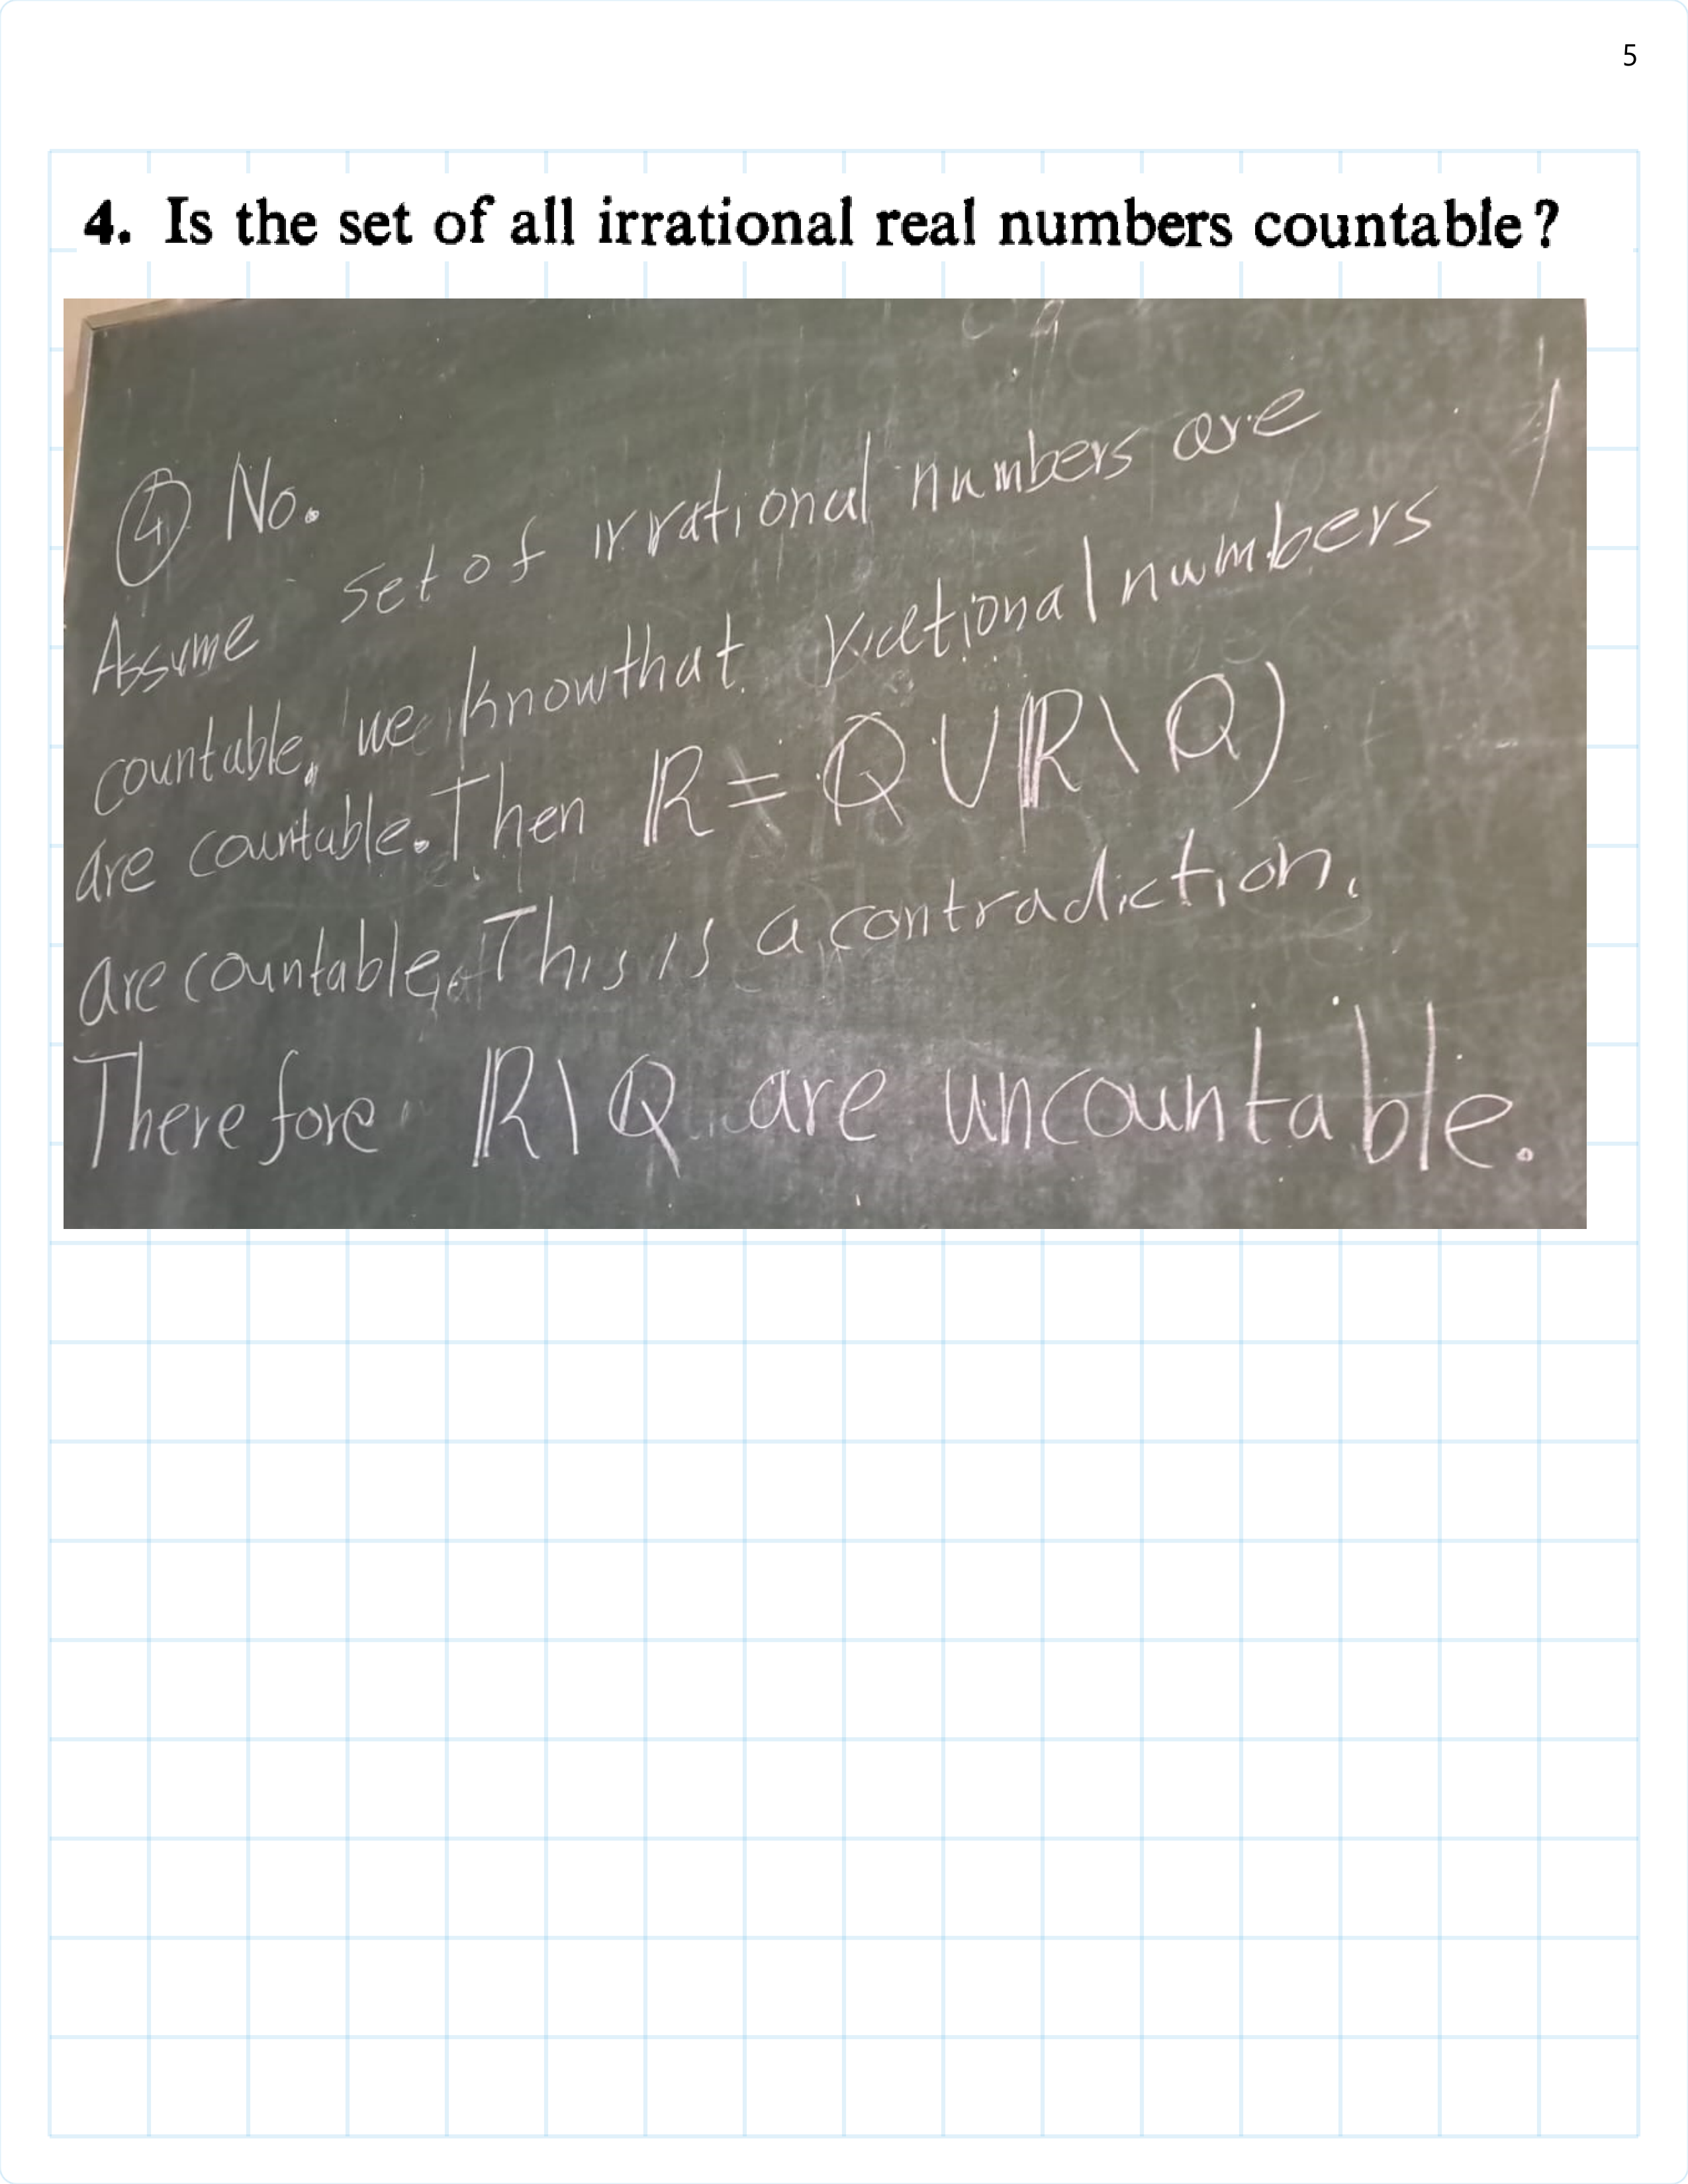 5
4. Is the set of all irrational real numbers countable?
④ No.
Assume set of irrational numbers are
countable, we know that rational numbers
are countable. Then ℝ = ℚ ∪ ℝ \ ℚ)
are countable. This is a contradiction.
Therefore ℝ \ ℚ are uncountable.